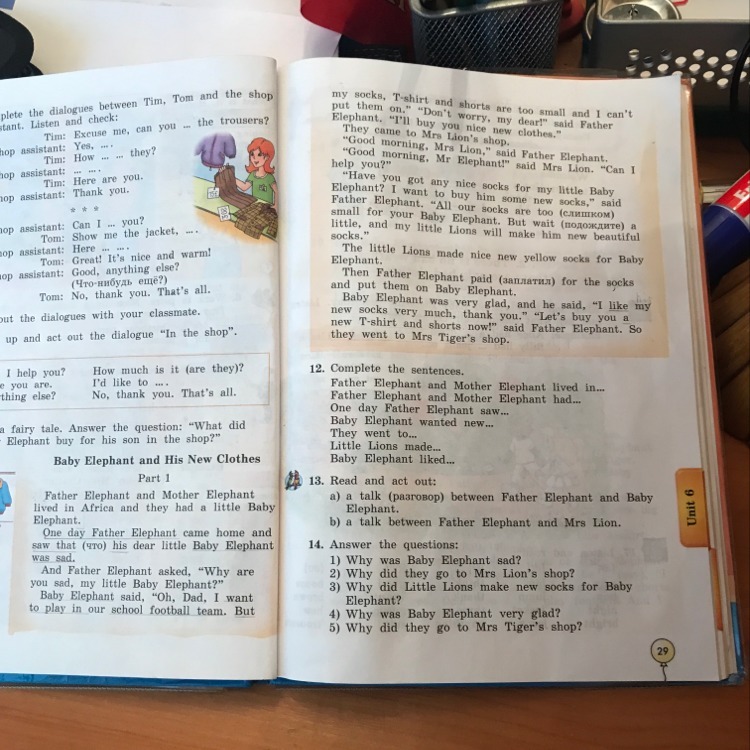 plete the dialogues between Tim, Tom and the shop
stant. Listen and check:
Tim: Excuse me, can you ... the trousers?
hop assistant: Yes, ... .
Tim: How ... ... they?
hop assistant: ... ... .
Tim: Here are you.
hop assistant: Thank you.
* * *
hop assistant: Can I ... you?
Tom: Show me the jacket, ... .
hop assistant: Here ... ... .
Tom: Great! It's nice and warm!
hop assistant: Good, anything else?
(Что-нибудь ещё?)
Tom: No, thank you. That's all.
out the dialogues with your classmate.
up and act out the dialogue “In the shop”.
I help you? How much is it (are they)?
e you are. I'd like to ... .
thing else? No, thank you. That's all.
a fairy tale. Answer the question: “What did
Elephant buy for his son in the shop?”
Baby Elephant and His New Clothes
Part 1
Father Elephant and Mother Elephant
lived in Africa and they had a little Baby
Elephant.
One day Father Elephant came home and
saw that (что) his dear little Baby Elephant
was sad.
And Father Elephant asked, “Why are
you sad, my little Baby Elephant?”
Baby Elephant said, “Oh, Dad, I want
to play in our school football team. But
my socks, T-shirt and shorts are too small and I can't
put them on.” “Don't worry, my dear!” said Father
Elephant. “I'll buy you nice new clothes.”
They came to Mrs Lion's shop.
“Good morning, Mrs Lion,” said Father Elephant.
“Good morning, Mr Elephant!” said Mrs Lion. “Can I
help you?”
“Have you got any nice socks for my little Baby
Elephant? I want to buy him some new socks,” said
Father Elephant. “All our socks are too (слишком)
small for your Baby Elephant. But wait (подождите) a
little, and my little Lions will make him new beautiful
socks.”
The little Lions made nice new yellow socks for Baby
Elephant.
Then Father Elephant paid (заплатил) for the socks
and put them on Baby Elephant.
Baby Elephant was very glad, and he said, “I like my
new socks very much, thank you.” “Let's buy you a
new T-shirt and shorts now!” said Father Elephant. So
they went to Mrs Tiger's shop.
12. Complete the sentences.
Father Elephant and Mother Elephant lived in...
Father Elephant and Mother Elephant had...
One day Father Elephant saw...
Baby Elephant wanted new...
They went to...
Little Lions made...
Baby Elephant liked...
13. Read and act out:
a) a talk (разговор) between Father Elephant and Baby
Elephant.
b) a talk between Father Elephant and Mrs Lion.
14. Answer the questions:
1) Why was Baby Elephant sad?
2) Why did they go to Mrs Lion's shop?
3) Why did Little Lions make new socks for Baby
Elephant?
4) Why was Baby Elephant very glad?
5) Why did they go to Mrs Tiger's shop?
Unit 6
29